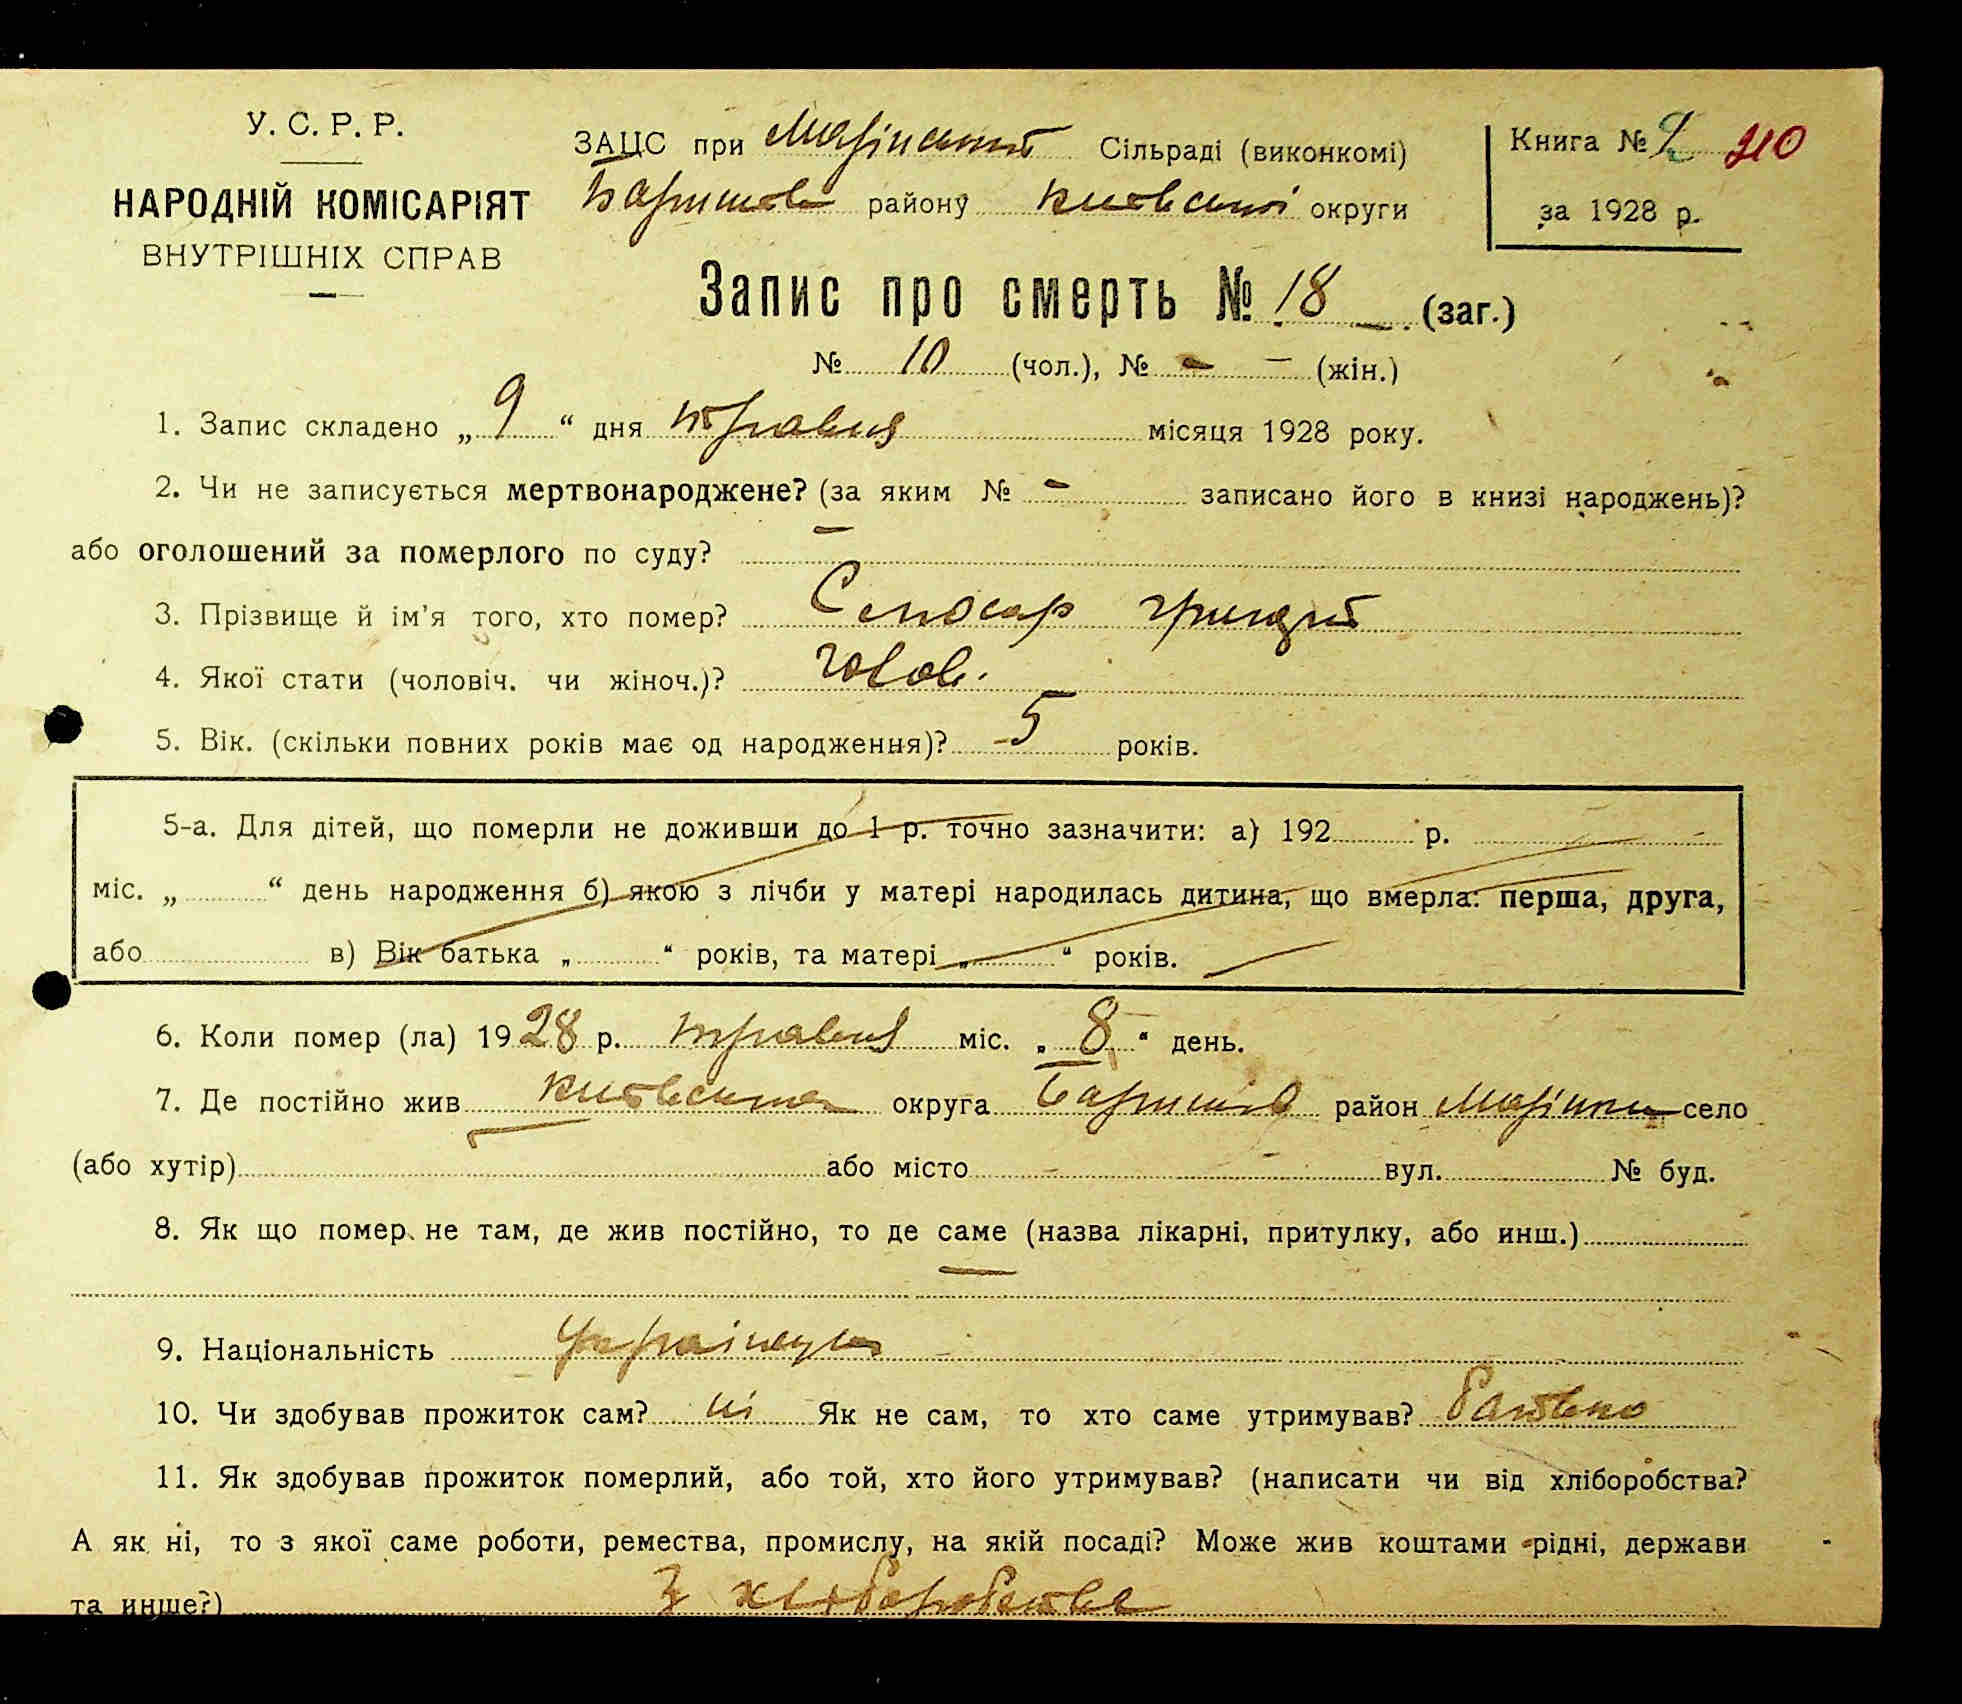 У. С. Р. Р.
НАРОДНІЙ КОМІСАРІЯТ
ВНУТРІШНІХ СПРАВ
ЗАЦС при Марінській Сільраді (виконкомі)
Баришев району Киівської округи
Книга №
за 1928 р.
Запис про смерть № 18 (заг.)
№ 10 (чол.), № - - (жін.)
1. Запис складено „ 9 “ дня травня місяця 1928 року.
2. Чи не записується мертвонароджене? (за яким № - записано його в книзі народжень)?
або оголошений за померлого по суду? -
3. Прізвище й ім’я того, хто помер? Слюсар Григорій
4. Якої стати (чоловіч. чи жіноч.)? чолов.
5. Вік. (скільки повних років має од народження)? 5 років.
5-а. Для дітей, що померли не доживши до 1 р. точно зазначити: а) 192 р.
міс. „ “ день народження б) якою з лічби у матері народилась дитина, що вмерла: перша, друга,
або в) Вік батька „ “ років, та матері „ “ років.
6. Коли помер (ла) 1928 р. травня міс. „ 8 “ день.
7. Де постійно жив Київська округа Баришів район Марінка село
(або хутір) або місто - вул. № буд.
8. Як що помер не там, де жив постійно, то де саме (назва лікарні, притулку, або инш.)
9. Національність
10. Чи здобував прожиток сам? ні Як не сам, то хто саме утримував? батько
11. Як здобував прожиток померлий, або той, хто його утримував? (написати чи від хліборобства?
А як ні, то з якої саме роботи, ремества, промислу, на якій посаді? Може жив коштами рідні, держави
та инше?) З хліборобства